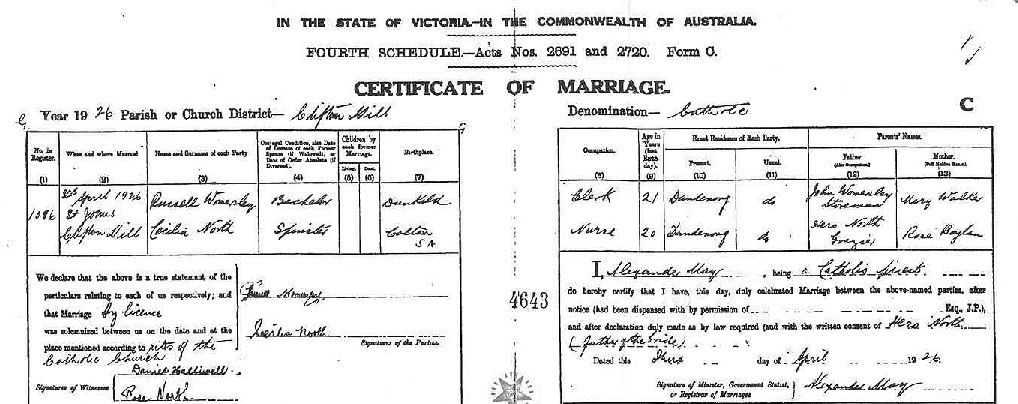 IN THE STATE OF VICTORIA.—IN THE COMMONWEALTH OF AUSTRALIA.
FOURTH SCHEDULE.—Acts Nos. 2691 and 2720. Form C.
CERTIFICATE OF MARRIAGE.
Year 1926 Parish or Church District— Clifton Hill
Denomination— Catholic
C
No. in Register. When and where Married Name and Surname of each Party Children by each former Marriage. Birthplace.
Occupation. Age in Years Usual Residence of Each Party. Parents' Names.
Living Dead Present. Usual. Father Mother
(1) (2) (3) (4) (5) (6) (7) (8) (9) (10) (11) (12) (13)
1386 April 1926 Russell Bachelor Dunkeld Clerk 21 Dandenong do John Storeman Mary
St Johns
Clifton Hill Cecilia North Spinster SA Nurse 20 Dandenong do North Rose
We declare that the above is a true statement of the
particulars relating to each of us respectively; and
that Marriage by licence
was solemnized between us on the date and at the
place mentioned according to rites of the
Catholic Church
Cecilia North
Signatures of the Parties.
Daniel Halliwell
Signatures of Witnesses
Rose North
4643
I, Alexander May, being a Catholic priest
do hereby certify that I have, this day, duly celebrated Marriage between the above-named parties, after
notice (had been dispensed with by permission of Esq., J.P.),
and after declaration duly made as by law required (and with the written consent of North
(father of the bride)
Dated this day of April 1926.
Signature of Minister, Government Statist,
or Registrar of Marriages
Alexander May